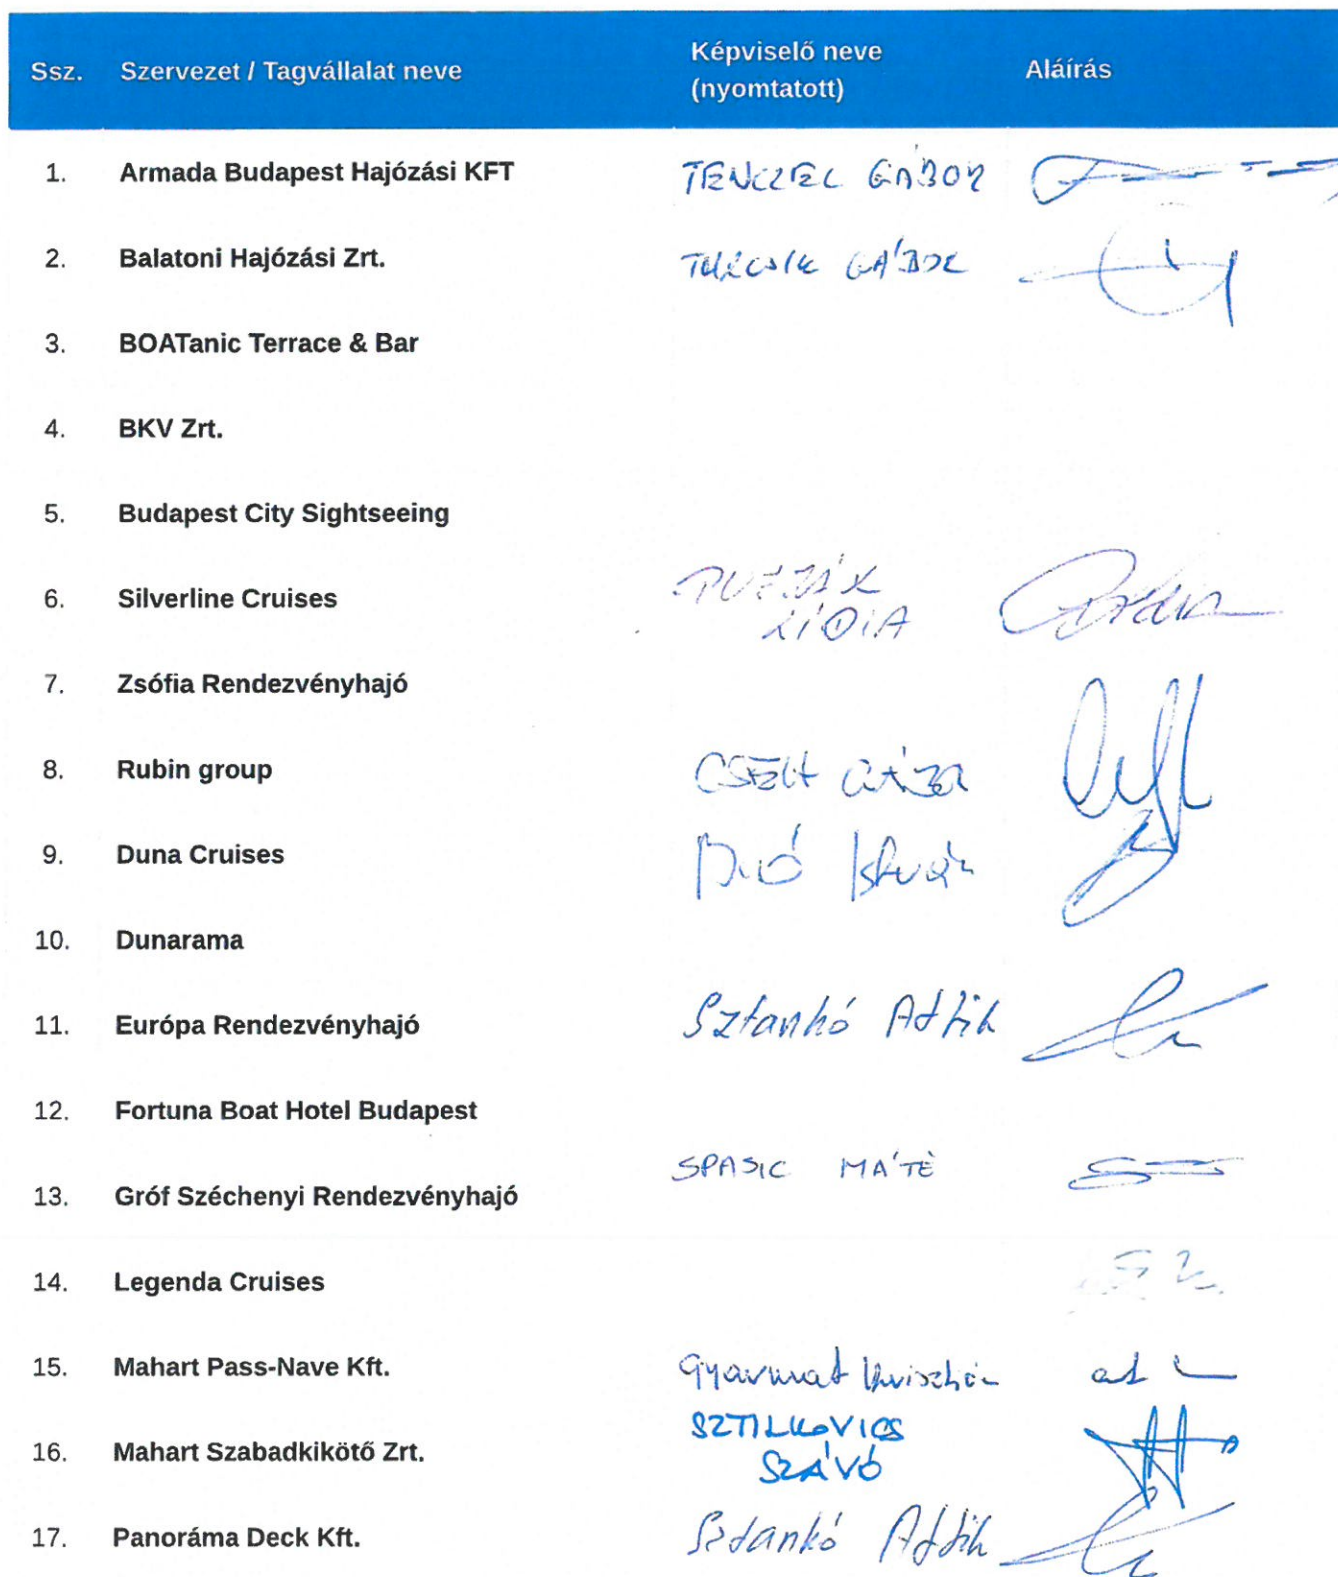 Ssz. Szervezet / Tagvállalat neve Képviselő neve (nyomtatott) Aláírás
1. Armada Budapest Hajózási KFT TENCZEL GÁBOR
2. Balatoni Hajózási Zrt. TURCSIK GÁBOR
3. BOATanic Terrace & Bar
4. BKV Zrt.
5. Budapest City Sightseeing
6. Silverline Cruises LÍDIA
7. Zsófia Rendezvényhajó
8. Rubin group
9. Duna Cruises István
10. Dunarama
11. Európa Rendezvényhajó Sztankó Attila
12. Fortuna Boat Hotel Budapest
13. Gróf Széchenyi Rendezvényhajó SPASIC MÁTÉ
14. Legenda Cruises
15. Mahart Pass-Nave Kft. Gyarmat
16. Mahart Szabadkikötő Zrt. SZTILKOVICS SZÁVÓ
17. Panoráma Deck Kft. Sztankó Attila